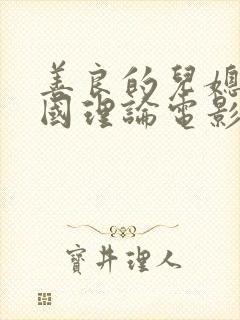 善良的兒媳
國理論電影
寶井理人